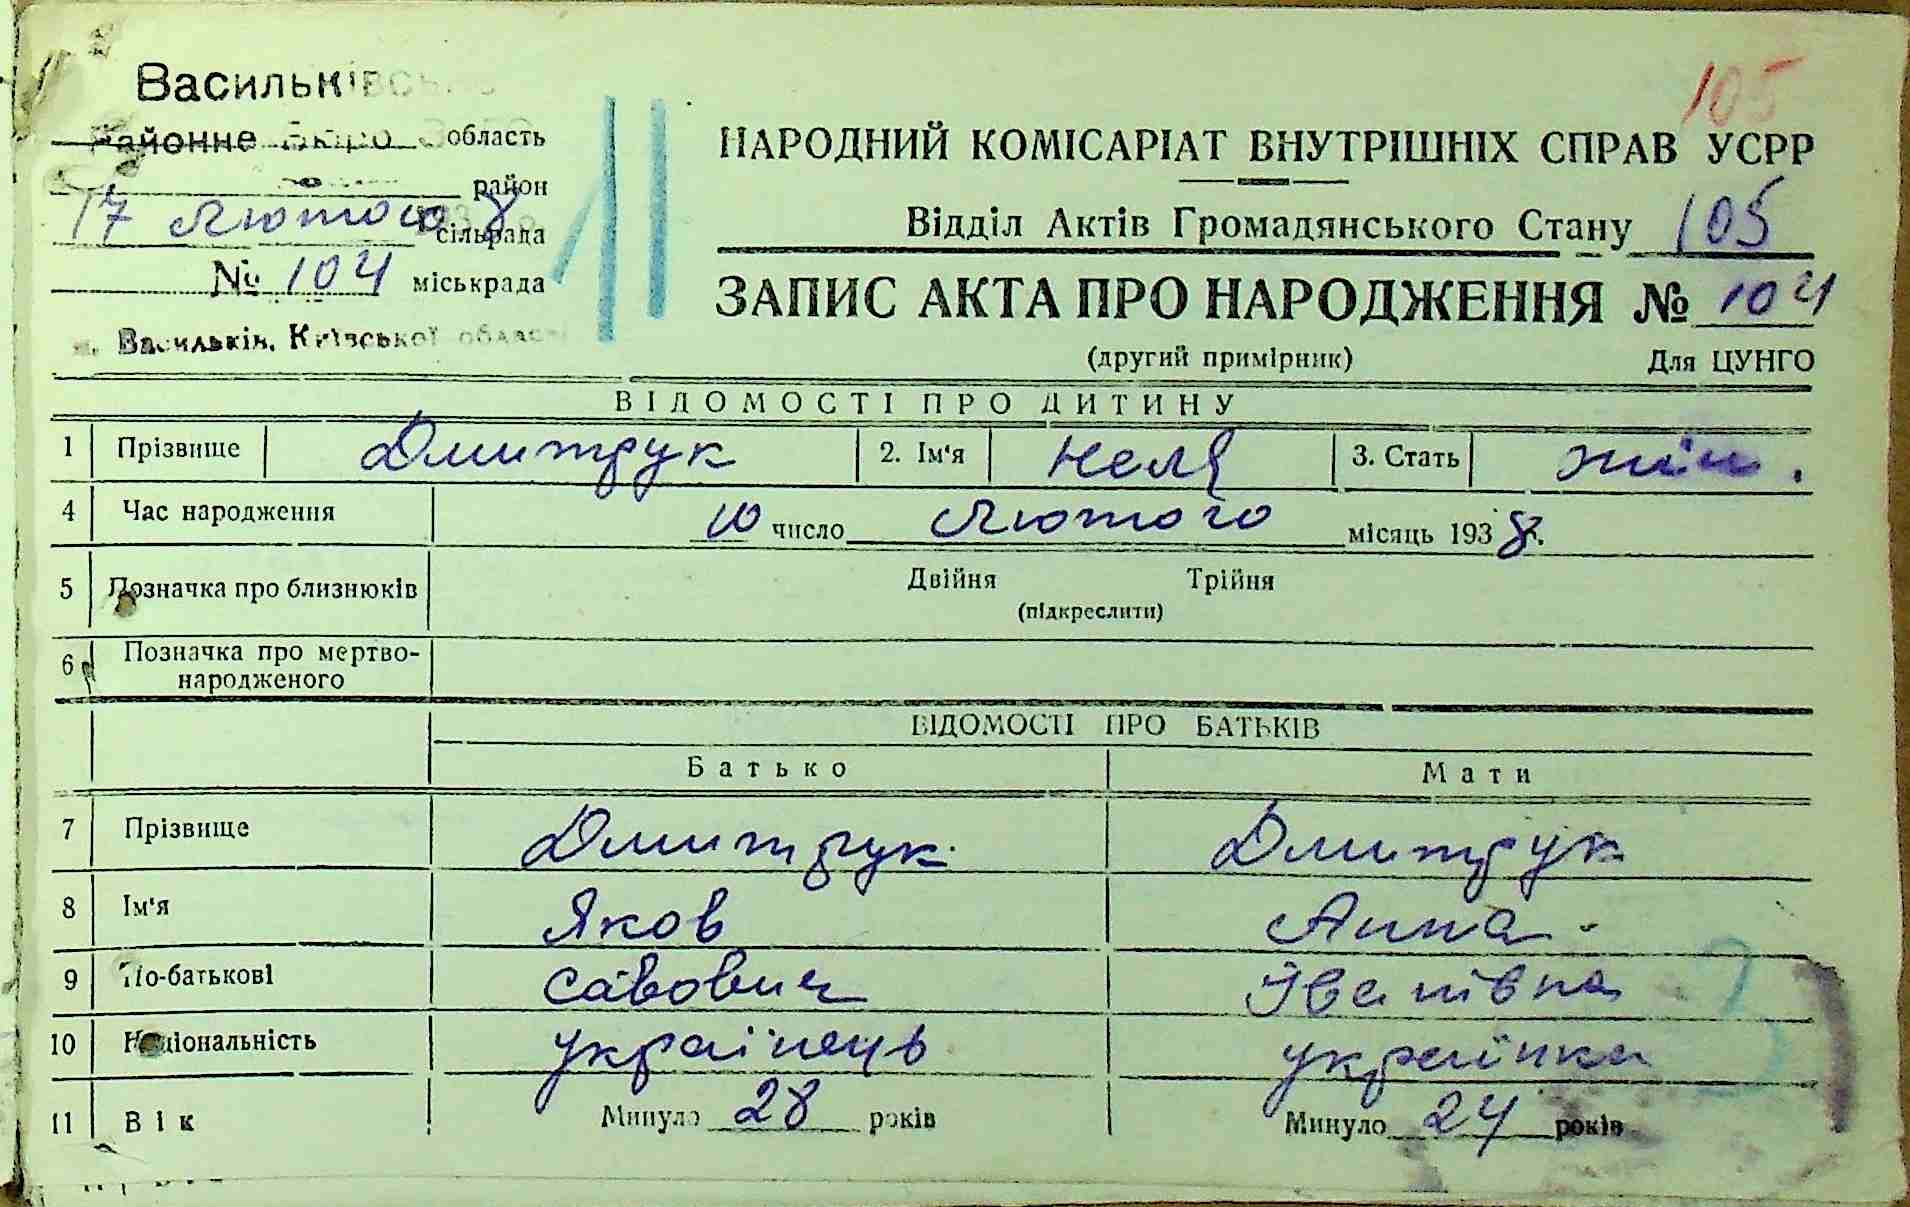 Васильківське
105
Районне Бюро область
НАРОДНИЙ КОМІСАРІАТ ВНУТРІШНІХ СПРАВ УСРР
район
17 Лютого 8 сільрада
Відділ Актів Громадянського Стану 105
№ 104 міськрада
ЗАПИС АКТА ПРО НАРОДЖЕННЯ № 104
м. Васильків, Київської області
(другий примірник) Для ЦУНГО
ВІДОМОСТІ ПРО ДИТИНУ
1 Прізвище Дмитрук 2. Ім'я Неля 3. Стать жін.
4 Час народження 10 число Лютого місяць 1938 р.
5 Позначка про близнюків Двійня Трійня
(підкреслити)
6 Позначка про мертво-
народженого
ВІДОМОСТІ ПРО БАТЬКІВ
Батько Мати
7 Прізвище Дмитрук Дмитрук
8 Ім'я Яков Анна
9 По-батькові Савович Іванівна
10 Національність українець українка
11 Вік Минуло 28 років Минуло 24 років